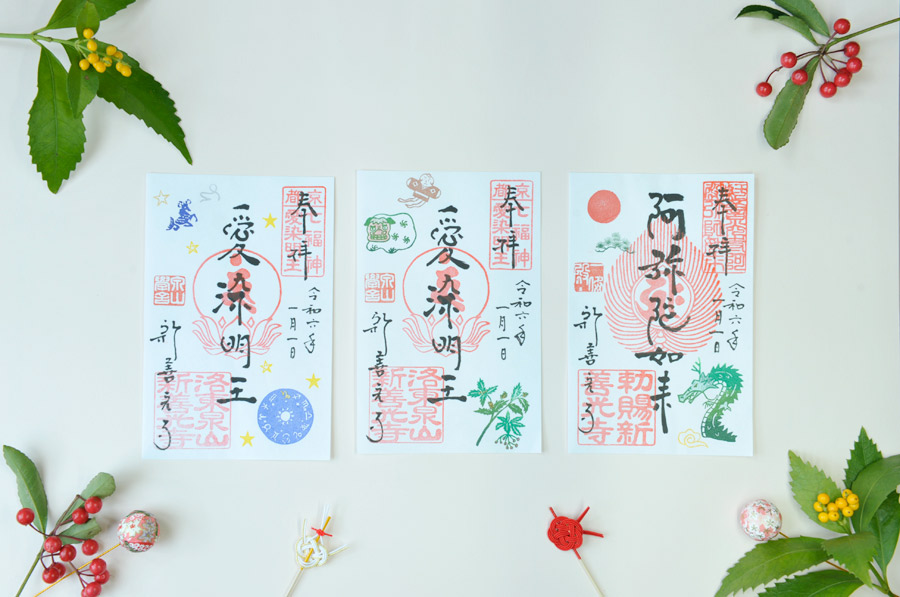 奉拝
愛染明王
令和六年
一月一日
新善光寺
洛東泉山
新善光寺
奉拝
愛染明王
令和六年
一月一日
新善光寺
洛東泉山
新善光寺
奉拝
阿弥陀如来
令和六年
一月一日
新善光寺
勅賜新
善光寺